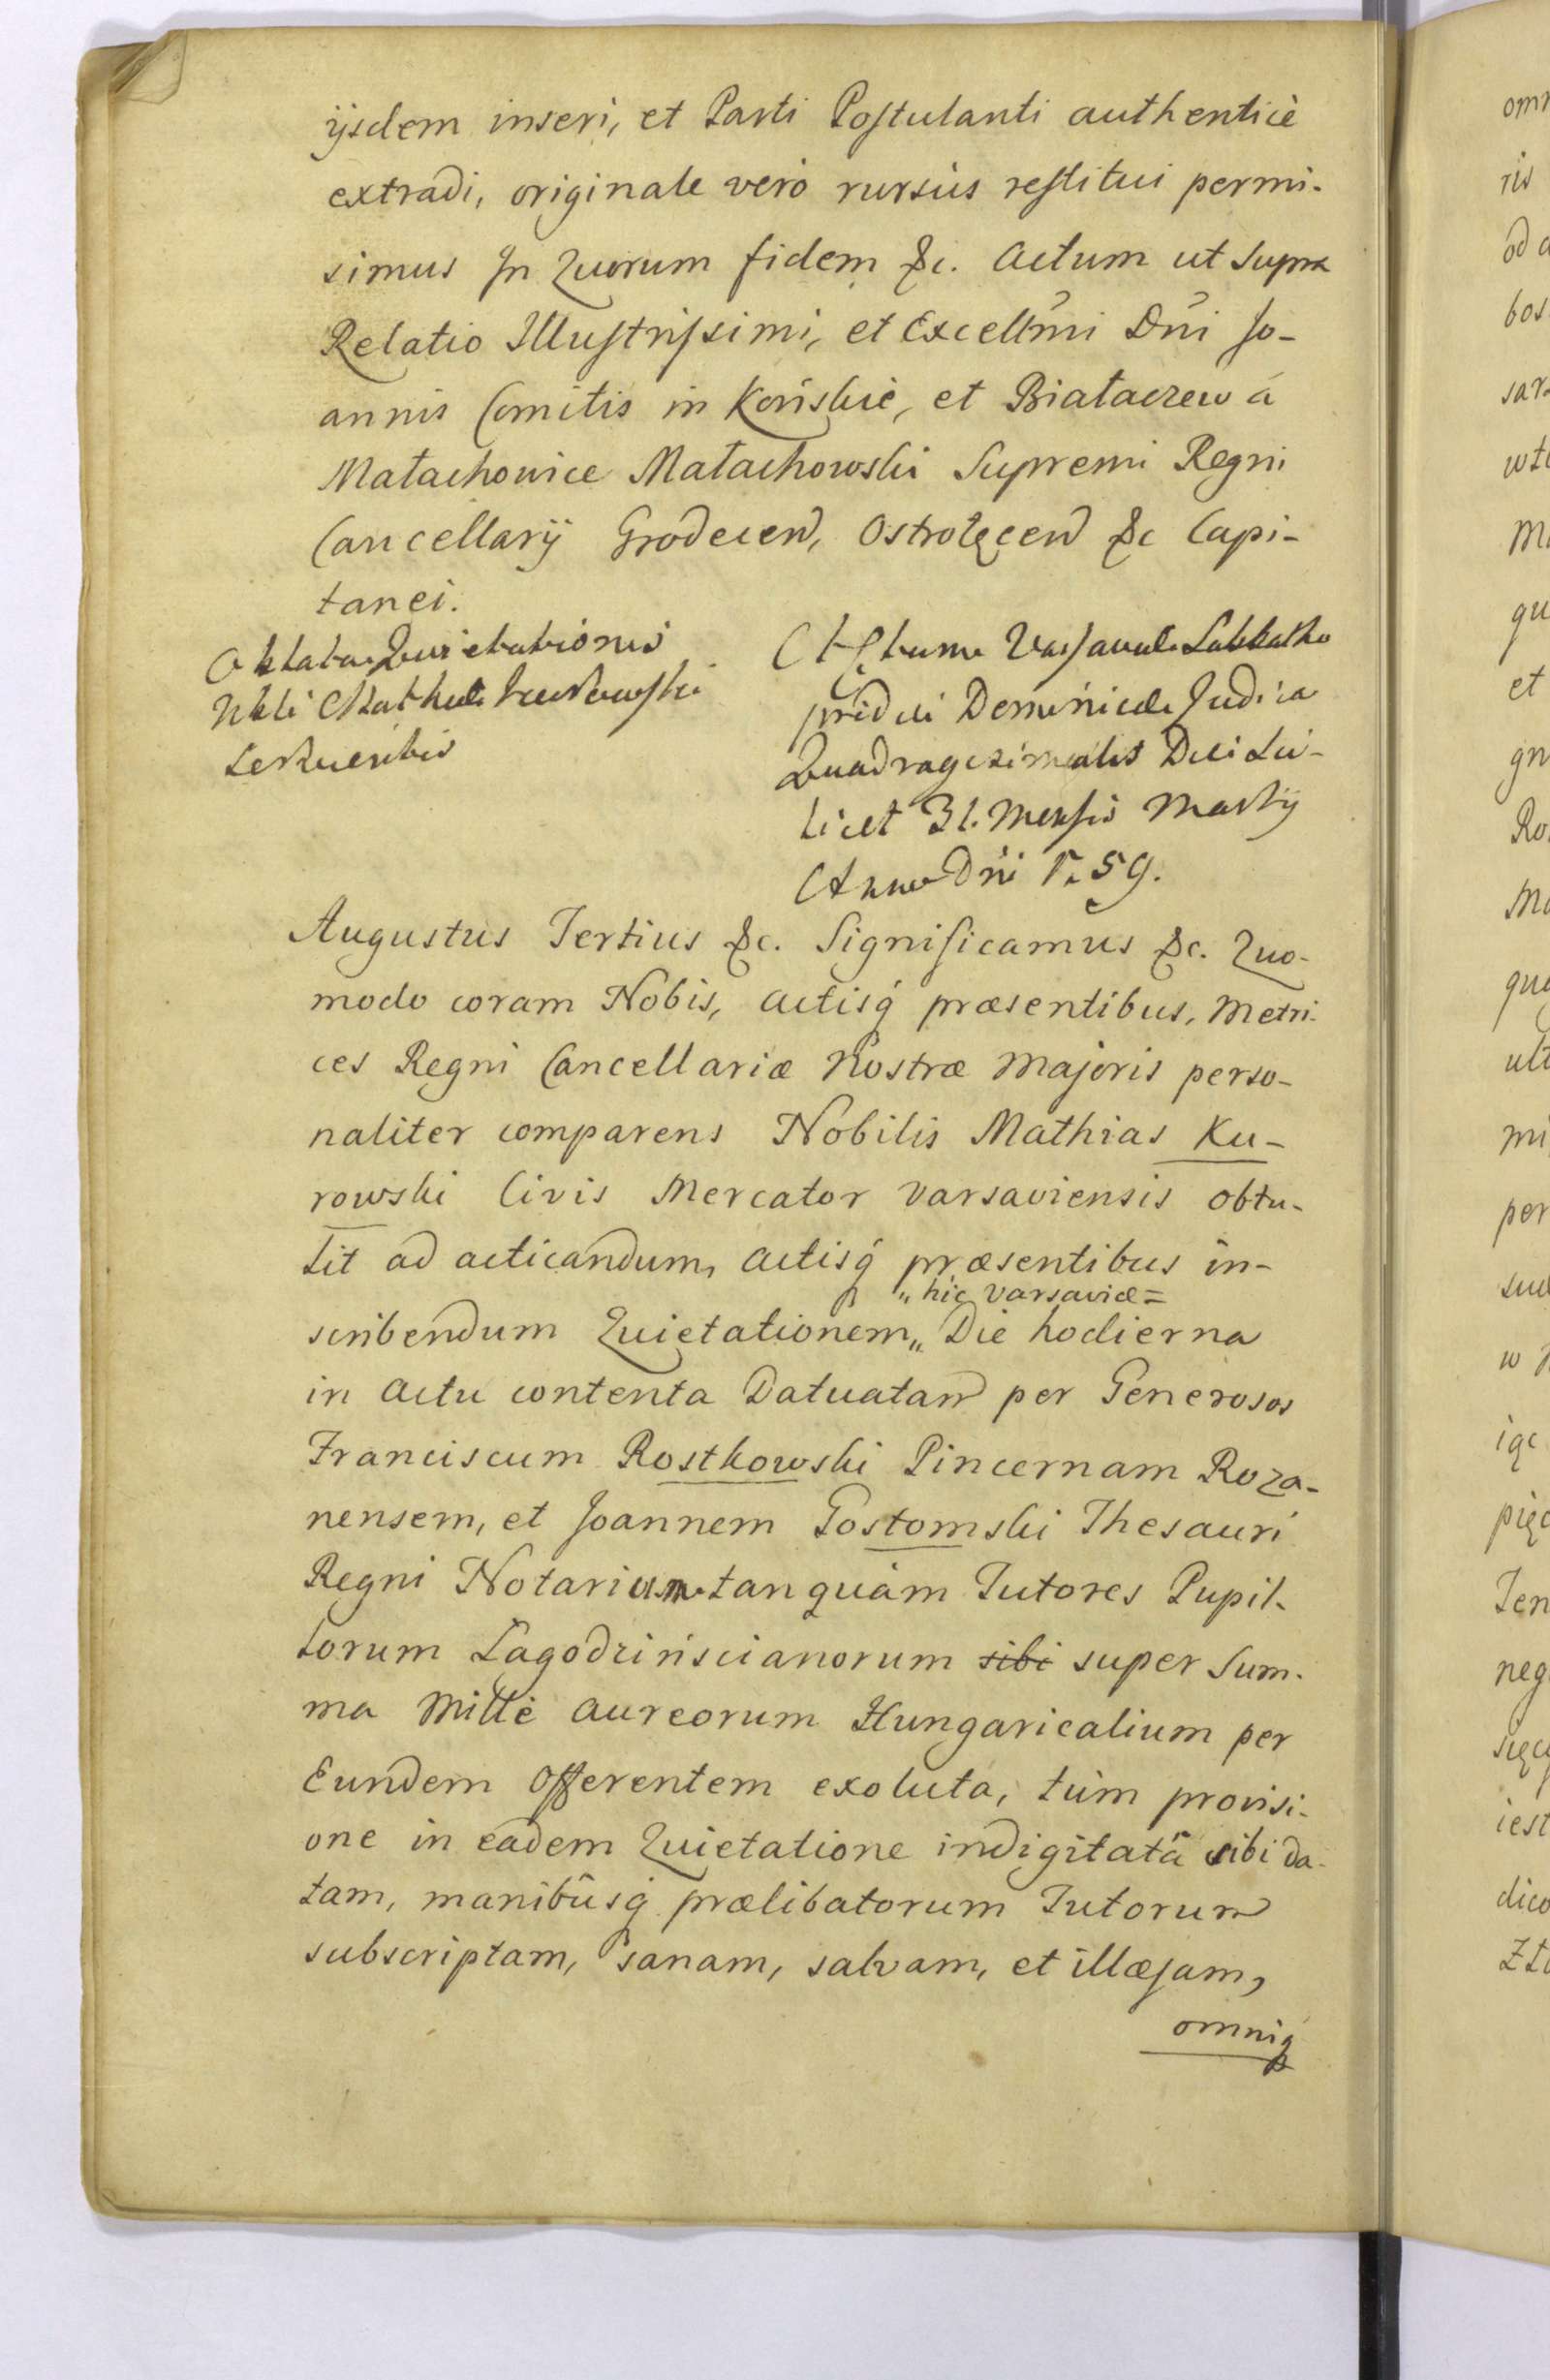 ijsdem inseri, et Parti Postulanti authenticè
extradi, originale verò rursùs restitui permi-
simus In Quorum fidem &c. Actum ut supra
Relatio Illustrissimi, et Excellmi Dni Jo-
annis Comitis in Końskie, et Białaczew á
Małachowice Małachowski Supremi Regni
Cancellarij Grodecen, Ostrołęcen &c Capi-
tanei.
Oblata Quietationis
Nbli Mathiæ Kurowski
servientis
Actum Varsaviæ Sabbatho
pridie Dominicæ Judica
Quadragesimalis Die sci-
licet 31. Mensis Martij
Anno Dni 1759.
Augustus Tertius &c. Significamus &c. Quo-
modo coram Nobis, actisq́ præsentibus, Metri-
ces Regni Cancellariæ Nostræ Majoris perso-
naliter comparens Nobilis Mathias Ku-
rowski Civis Mercator Varsaviensis obtu-
lit ad acticandum, actisq́ præsentibus in-
„ hic Varsaviæ =
scribendum Quietationem „ Die hodierna
in Actu contenta Datuatam per Generosos
Franciscum Rostkowski Pincernam Roza-
nensem, et Joannem Gostomski Thesauri
Regni Notarium tanquàm Tutores Pupil-
lorum Łagodzińscianorum sibi super Sum-
ma Mille Aureorum Hungaricalium per
Eundem Offerentem exoluta, tùm provisi-
one in eâdem Quietatione indigitatâ sibi da-
tam, manibûsq́ prælibatorum Tutorum
subscriptam, sanam, salvam, et illæsam,
omniq́